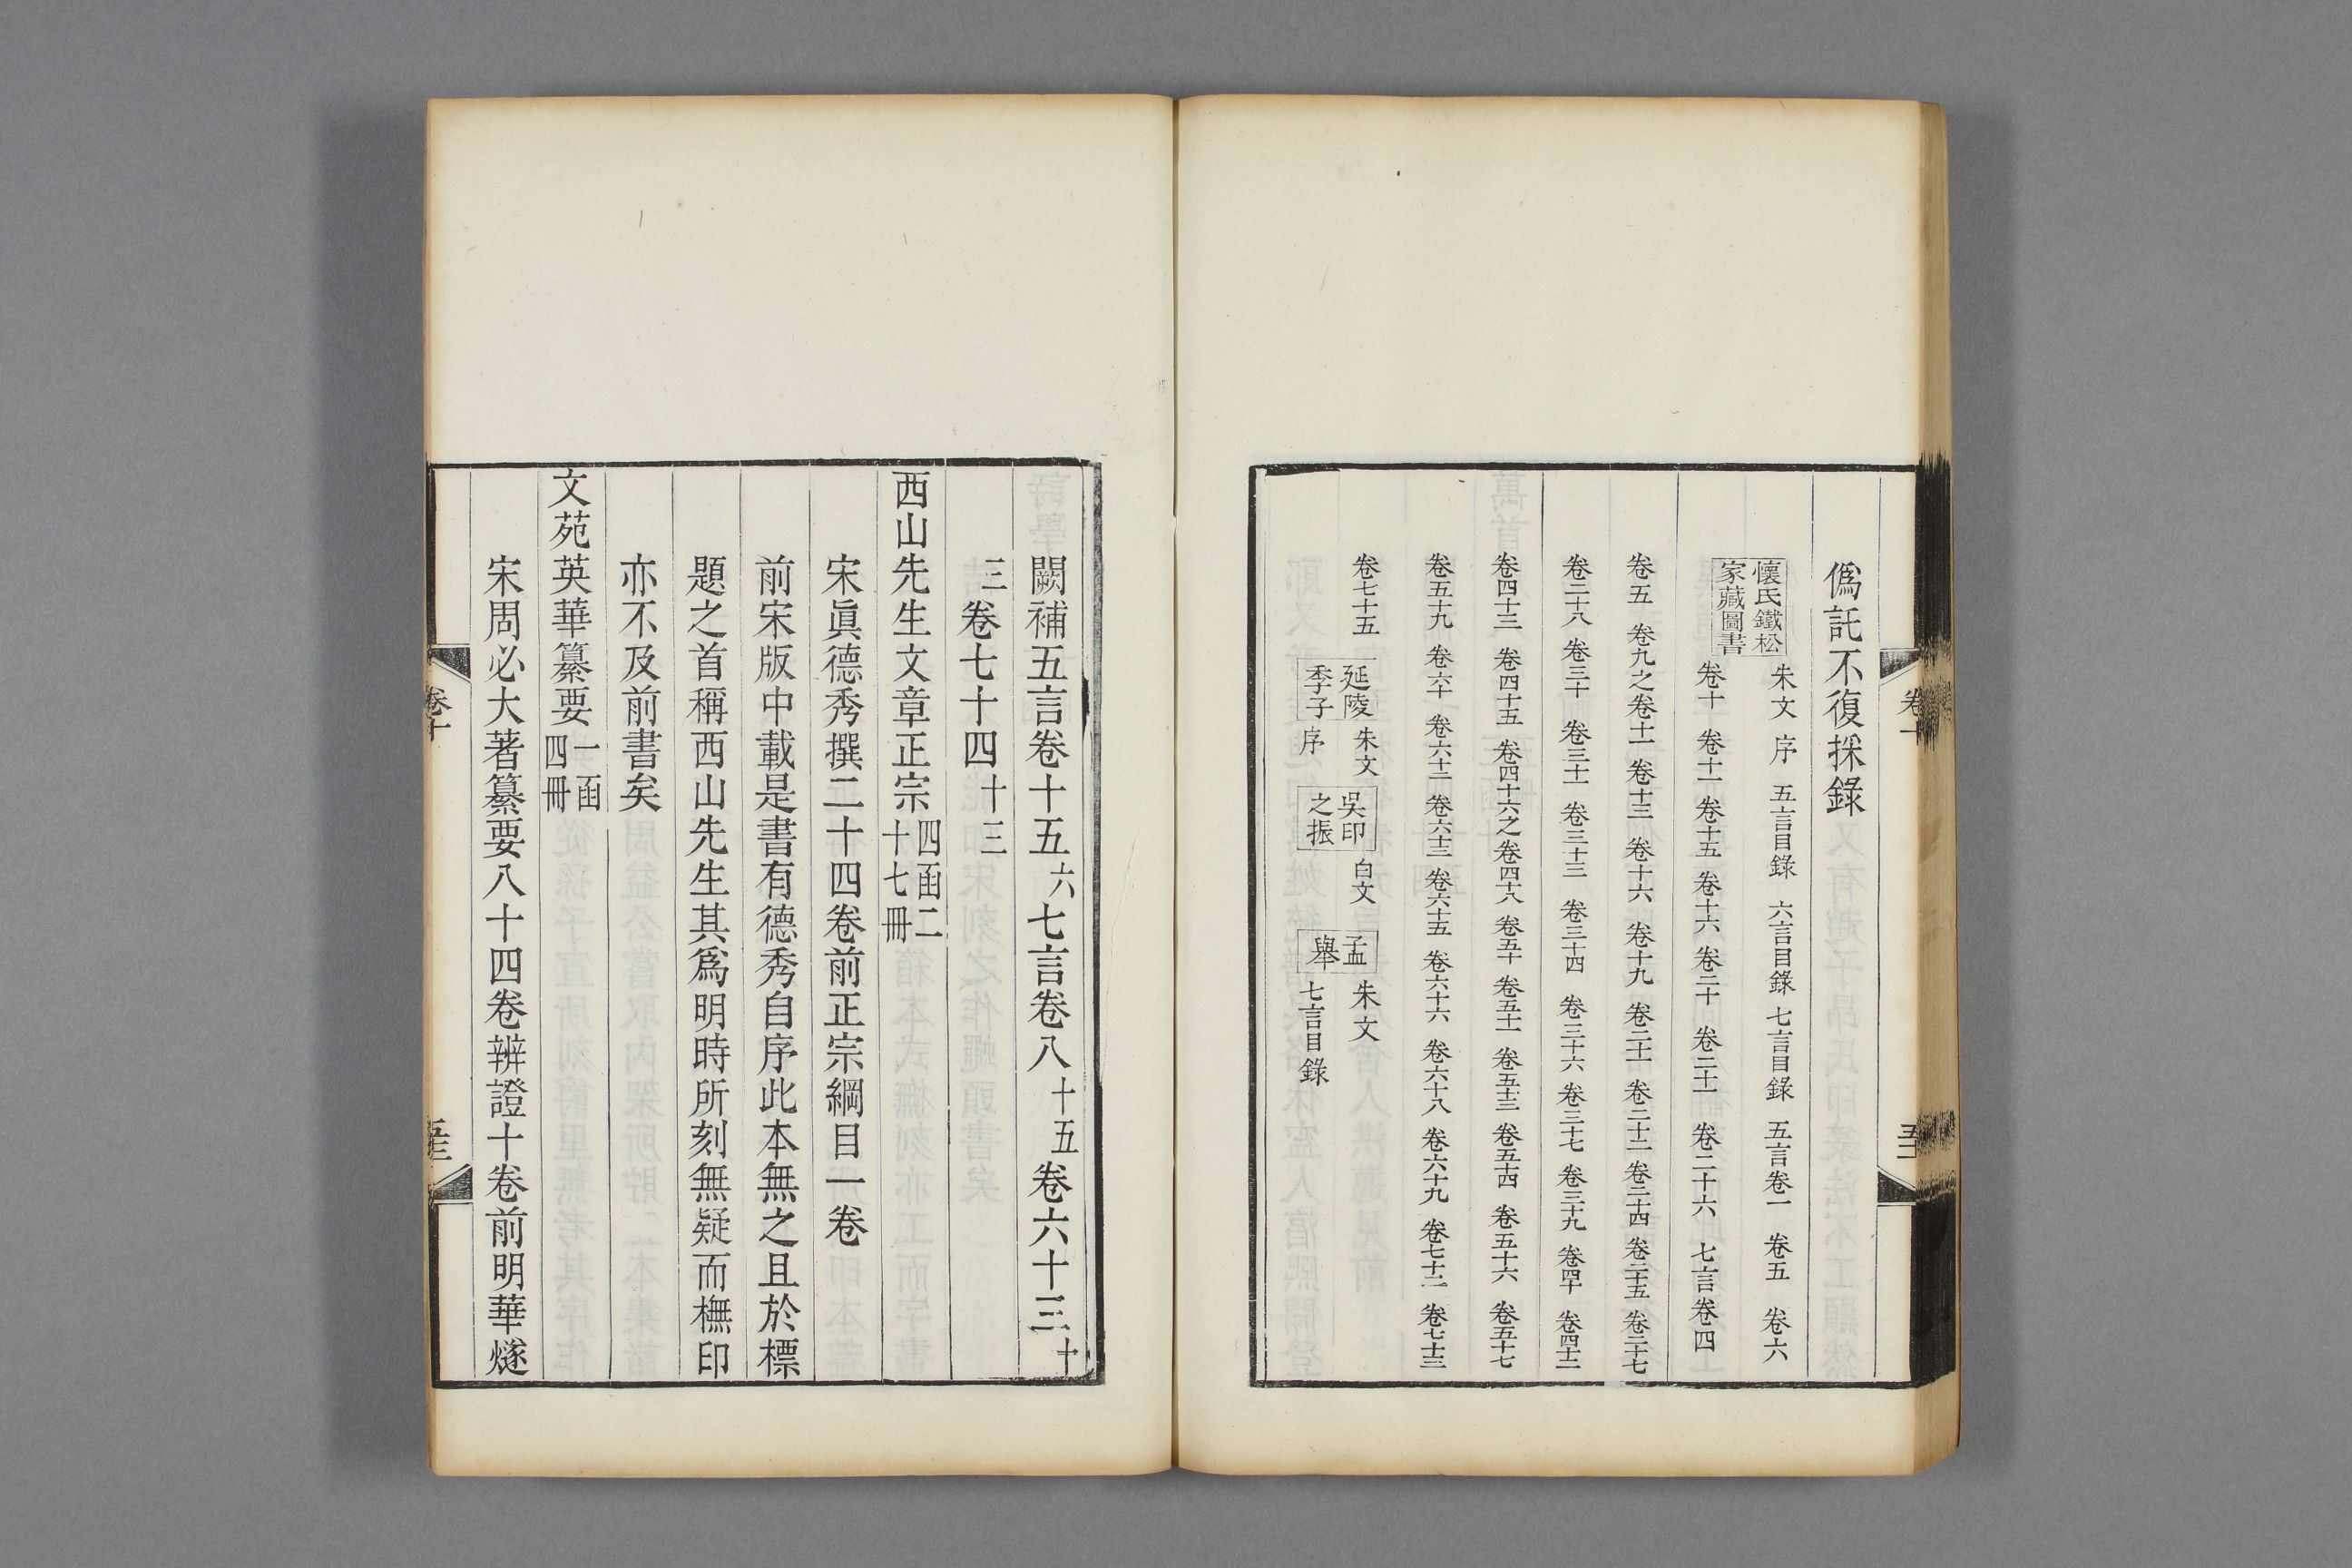 僞託不復採錄
懷氏鐵松家藏圖書 朱文 序 五言目錄 六言目錄 七言目錄 五言卷一 卷五 卷六
卷十 卷十一 卷十五 卷十六 卷二十 卷二十一 卷二十六 七言卷四
卷五 卷九之卷十一 卷十三 卷十六 卷十九 卷二十一 卷二十二 卷二十四 卷二十五 卷二十七
卷二十八 卷三十 卷三十一 卷三十三 卷三十四 卷三十六 卷三十七 卷三十九 卷四十 卷四十二
卷四十三 卷四十五 卷四十六之卷四十八 卷五十 卷五十一 卷五十三 卷五十四 卷五十六 卷五十七
卷五十九 卷六十 卷六十二 卷六十三 卷六十五 卷六十六 卷六十八 卷六十九 卷七十二 卷七十三
卷七十五
延陵季子 朱文 序 吳印之振 白文 孟舉 朱文 七言目錄
闕補五言卷十五六七言卷八十五卷六十三十
三卷七十四十三
西山先生文章正宗四函二十七冊
宋眞德秀撰二十四卷前正宗綱目一卷
前宋版中載是書有德秀自序此本無之且於標
題之首稱西山先生其爲明時所刻無疑而橅印
亦不及前書矣
文苑英華纂要一函四冊
宋周必大著纂要八十四卷辨證十卷前明華燧
卷十